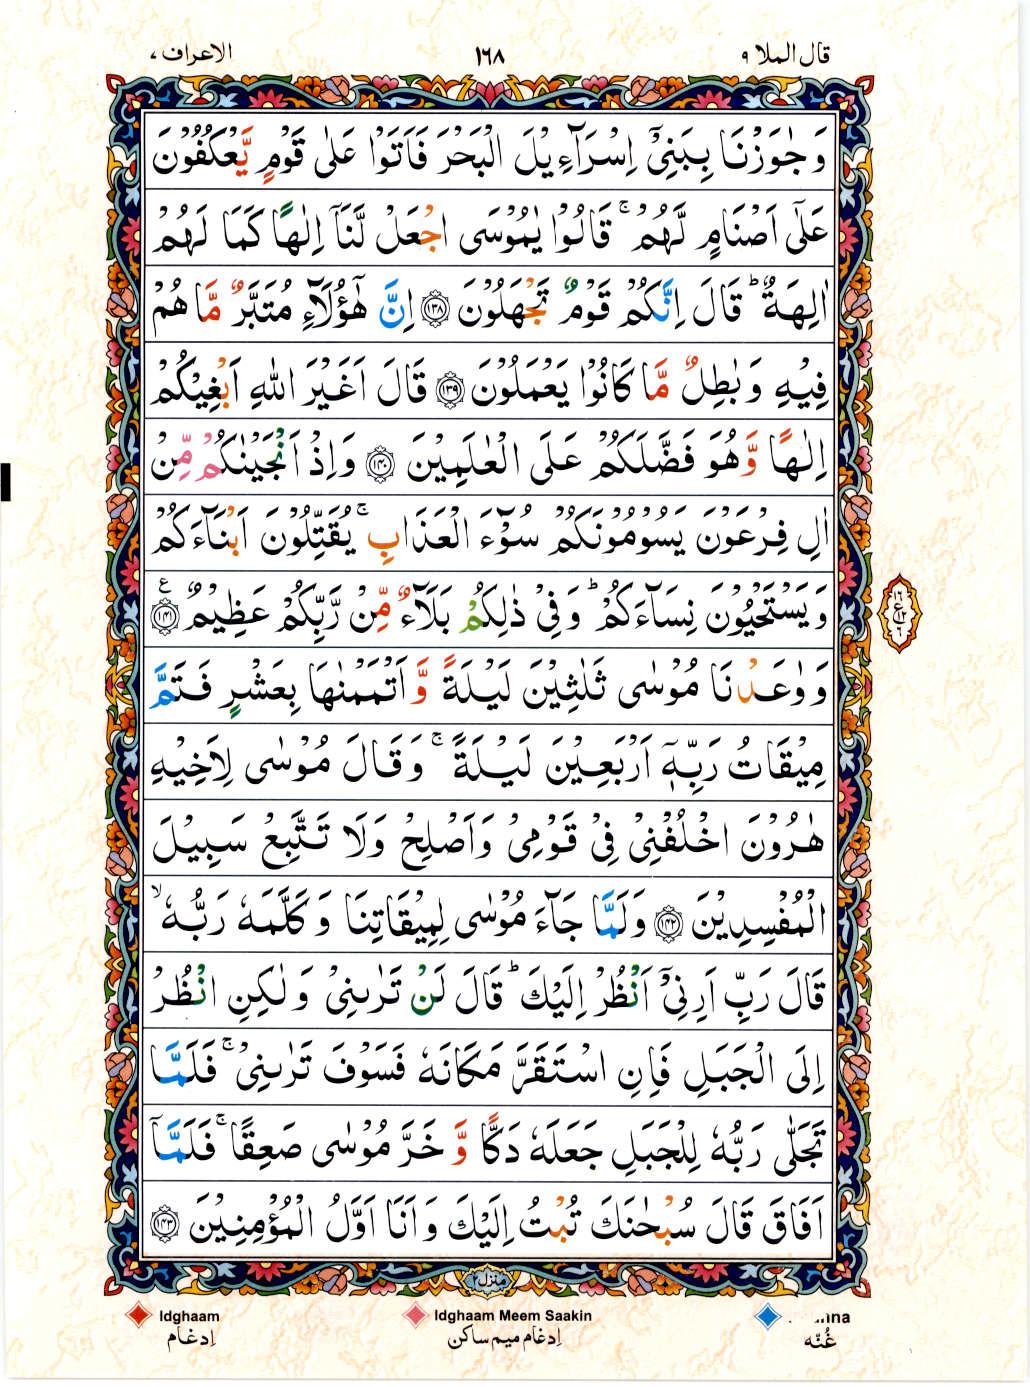 قال الملا ۹
۱۶۸
الاعراف ۷
وَجٰوَزْنَا بِبَنِیْۤ اِسْرَآءِیْلَ الْبَحْرَ فَاَتَوْا عَلٰی قَوْمٍ یَّعْكُفُوْنَ
عَلٰۤی اَصْنَامٍ لَّهُمْ ۚ قَالُوْا یٰمُوْسَی اجْعَلْ لَّنَاۤ اِلٰهًا كَمَا لَهُمْ
اٰلِهَةٌ ؕ قَالَ اِنَّكُمْ قَوْمٌ تَجْهَلُوْنَ ﴿۱۳۸﴾ اِنَّ هٰۤؤُلَآءِ مُتَبَّرٌ مَّا هُمْ
فِیْهِ وَبٰطِلٌ مَّا كَانُوْا یَعْمَلُوْنَ ﴿۱۳۹﴾ قَالَ اَغَیْرَ اللّٰهِ اَبْغِیْكُمْ
اِلٰهًا وَّهُوَ فَضَّلَكُمْ عَلَی الْعٰلَمِیْنَ ﴿۱۴۰﴾ وَاِذْ اَنْجَیْنٰكُمْ مِّنْ
اٰلِ فِرْعَوْنَ یَسُوْمُوْنَكُمْ سُوْٓءَ الْعَذَابِ ۚ یُقَتِّلُوْنَ اَبْنَآءَكُمْ
وَیَسْتَحْیُوْنَ نِسَآءَكُمْ ؕ وَفِیْ ذٰلِكُمْ بَلَآءٌ مِّنْ رَّبِّكُمْ عَظِیْمٌ ﴿۱۴۱﴾ ع
۱۶
ع ۱۲
۶
وَوٰعَدْنَا مُوْسٰی ثَلٰثِیْنَ لَیْلَةً وَّاَتْمَمْنٰهَا بِعَشْرٍ فَتَمَّ
مِیْقَاتُ رَبِّهٖۤ اَرْبَعِیْنَ لَیْلَةً ۚ وَقَالَ مُوْسٰی لِاَخِیْهِ
هٰرُوْنَ اخْلُفْنِیْ فِیْ قَوْمِیْ وَاَصْلِحْ وَلَا تَتَّبِعْ سَبِیْلَ
الْمُفْسِدِیْنَ ﴿۱۴۲﴾ وَلَمَّا جَآءَ مُوْسٰی لِمِیْقَاتِنَا وَكَلَّمَهٗ رَبُّهٗ ۙ
قَالَ رَبِّ اَرِنِیْۤ اَنْظُرْ اِلَیْكَ ؕ قَالَ لَنْ تَرٰىنِیْ وَلٰكِنِ انْظُرْ
اِلَی الْجَبَلِ فَاِنِ اسْتَقَرَّ مَكَانَهٗ فَسَوْفَ تَرٰىنِیْ ۚ فَلَمَّا
تَجَلّٰی رَبُّهٗ لِلْجَبَلِ جَعَلَهٗ دَكًّا وَّخَرَّ مُوْسٰی صَعِقًا ۚ فَلَمَّاۤ
اَفَاقَ قَالَ سُبْحٰنَكَ تُبْتُ اِلَیْكَ وَاَنَا اَوَّلُ الْمُؤْمِنِیْنَ ﴿۱۴۳﴾
منزل ۲
Idghaam
اِدغام
Idghaam Meem Saakin
اِدغام میم ساکن
غُنّه